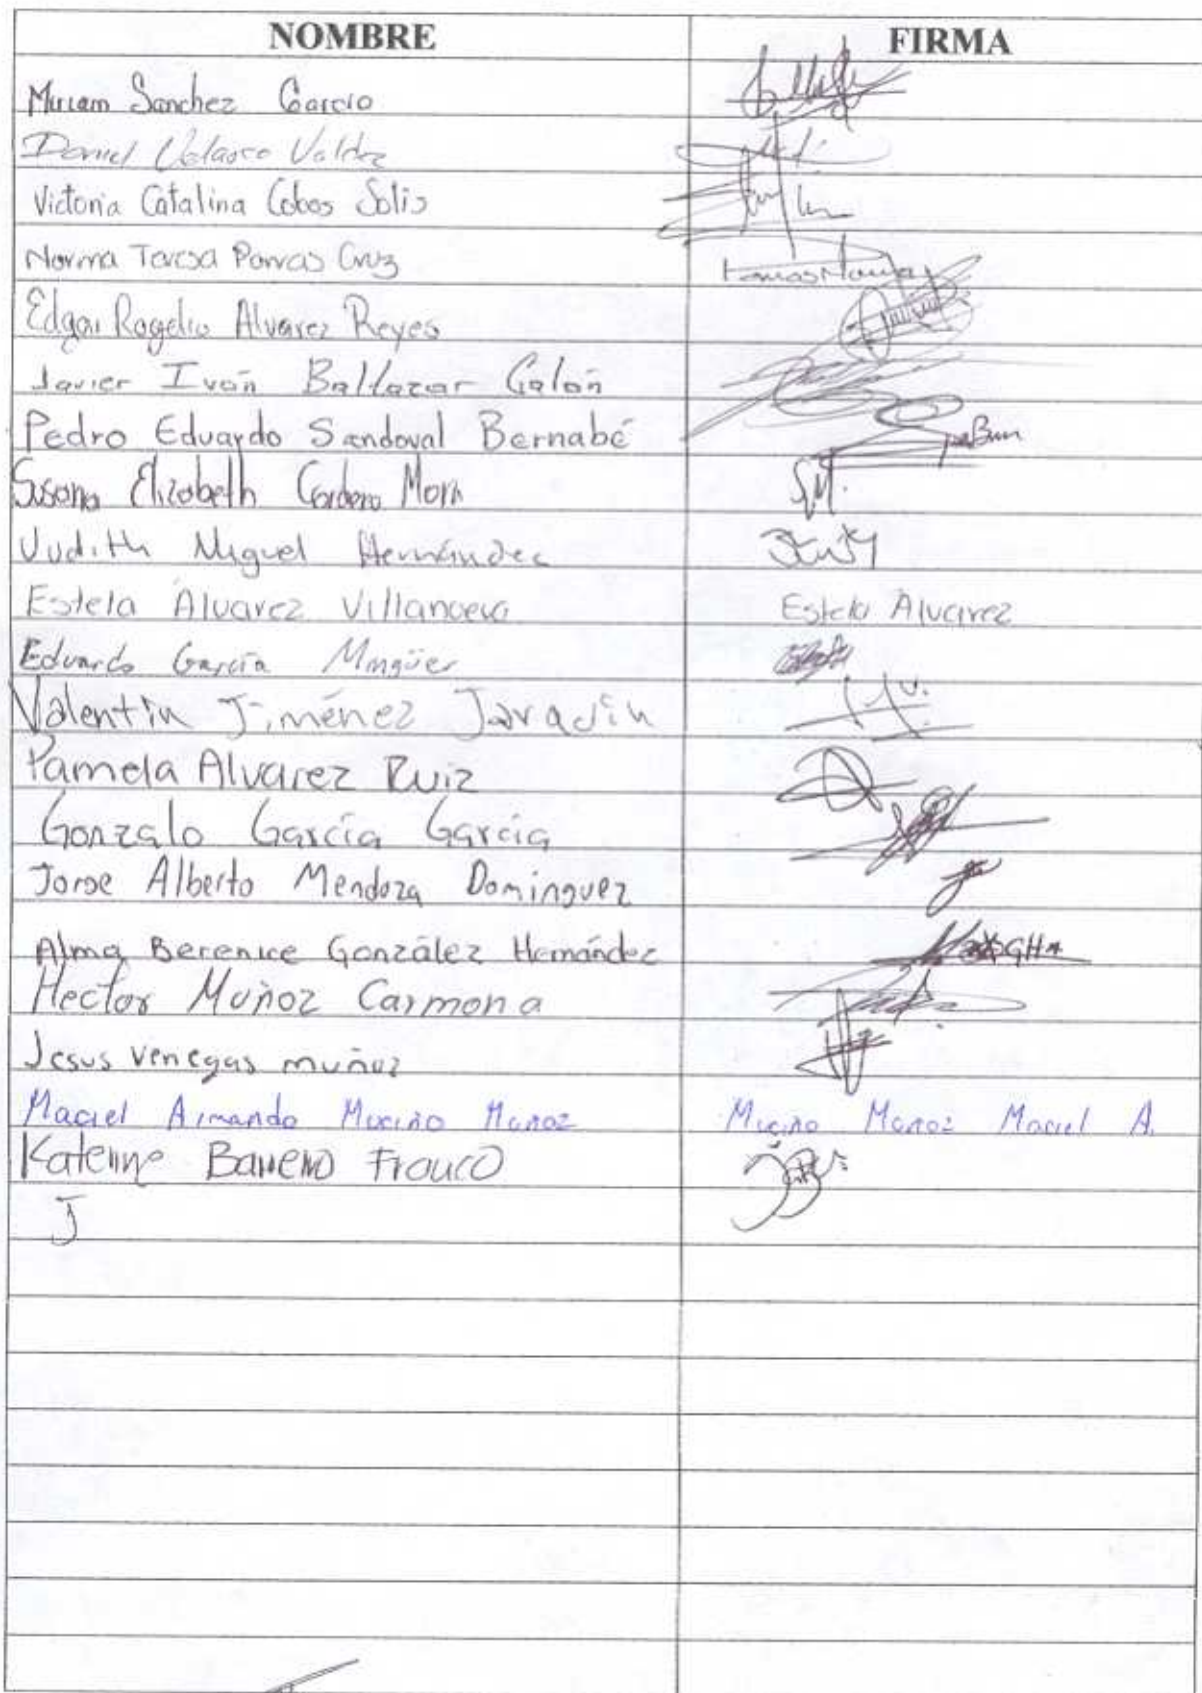 NOMBRE FIRMA
Miriam Sanchez Garcia
Daniel Velasco Valdez
Victoria Catalina Cobos Solis
Norma Teresa Porras Cruz
Edgar Rogelio Alvarez Reyes
Javier Iván Baltazar Galán
Pedro Eduardo Sandoval Bernabé
Susana Elizabeth Cordero Mora S.M.
Judith Miguel Hernández
Estela Álvarez Villanueva Estela Alvarez
Eduardo García Mingüer
Valentín Jiménez Jaradín
Pamela Alvarez Ruiz
Gonzalo García García
Jorge Alberto Mendoza Dominguez
Alma Berenice González Hernández
Hector Muñoz Carmona
Jesus Venegas muñoz
Maciel Armando Muciño Muñoz Muciño Muñoz Maciel A.
Barrero Franco
J